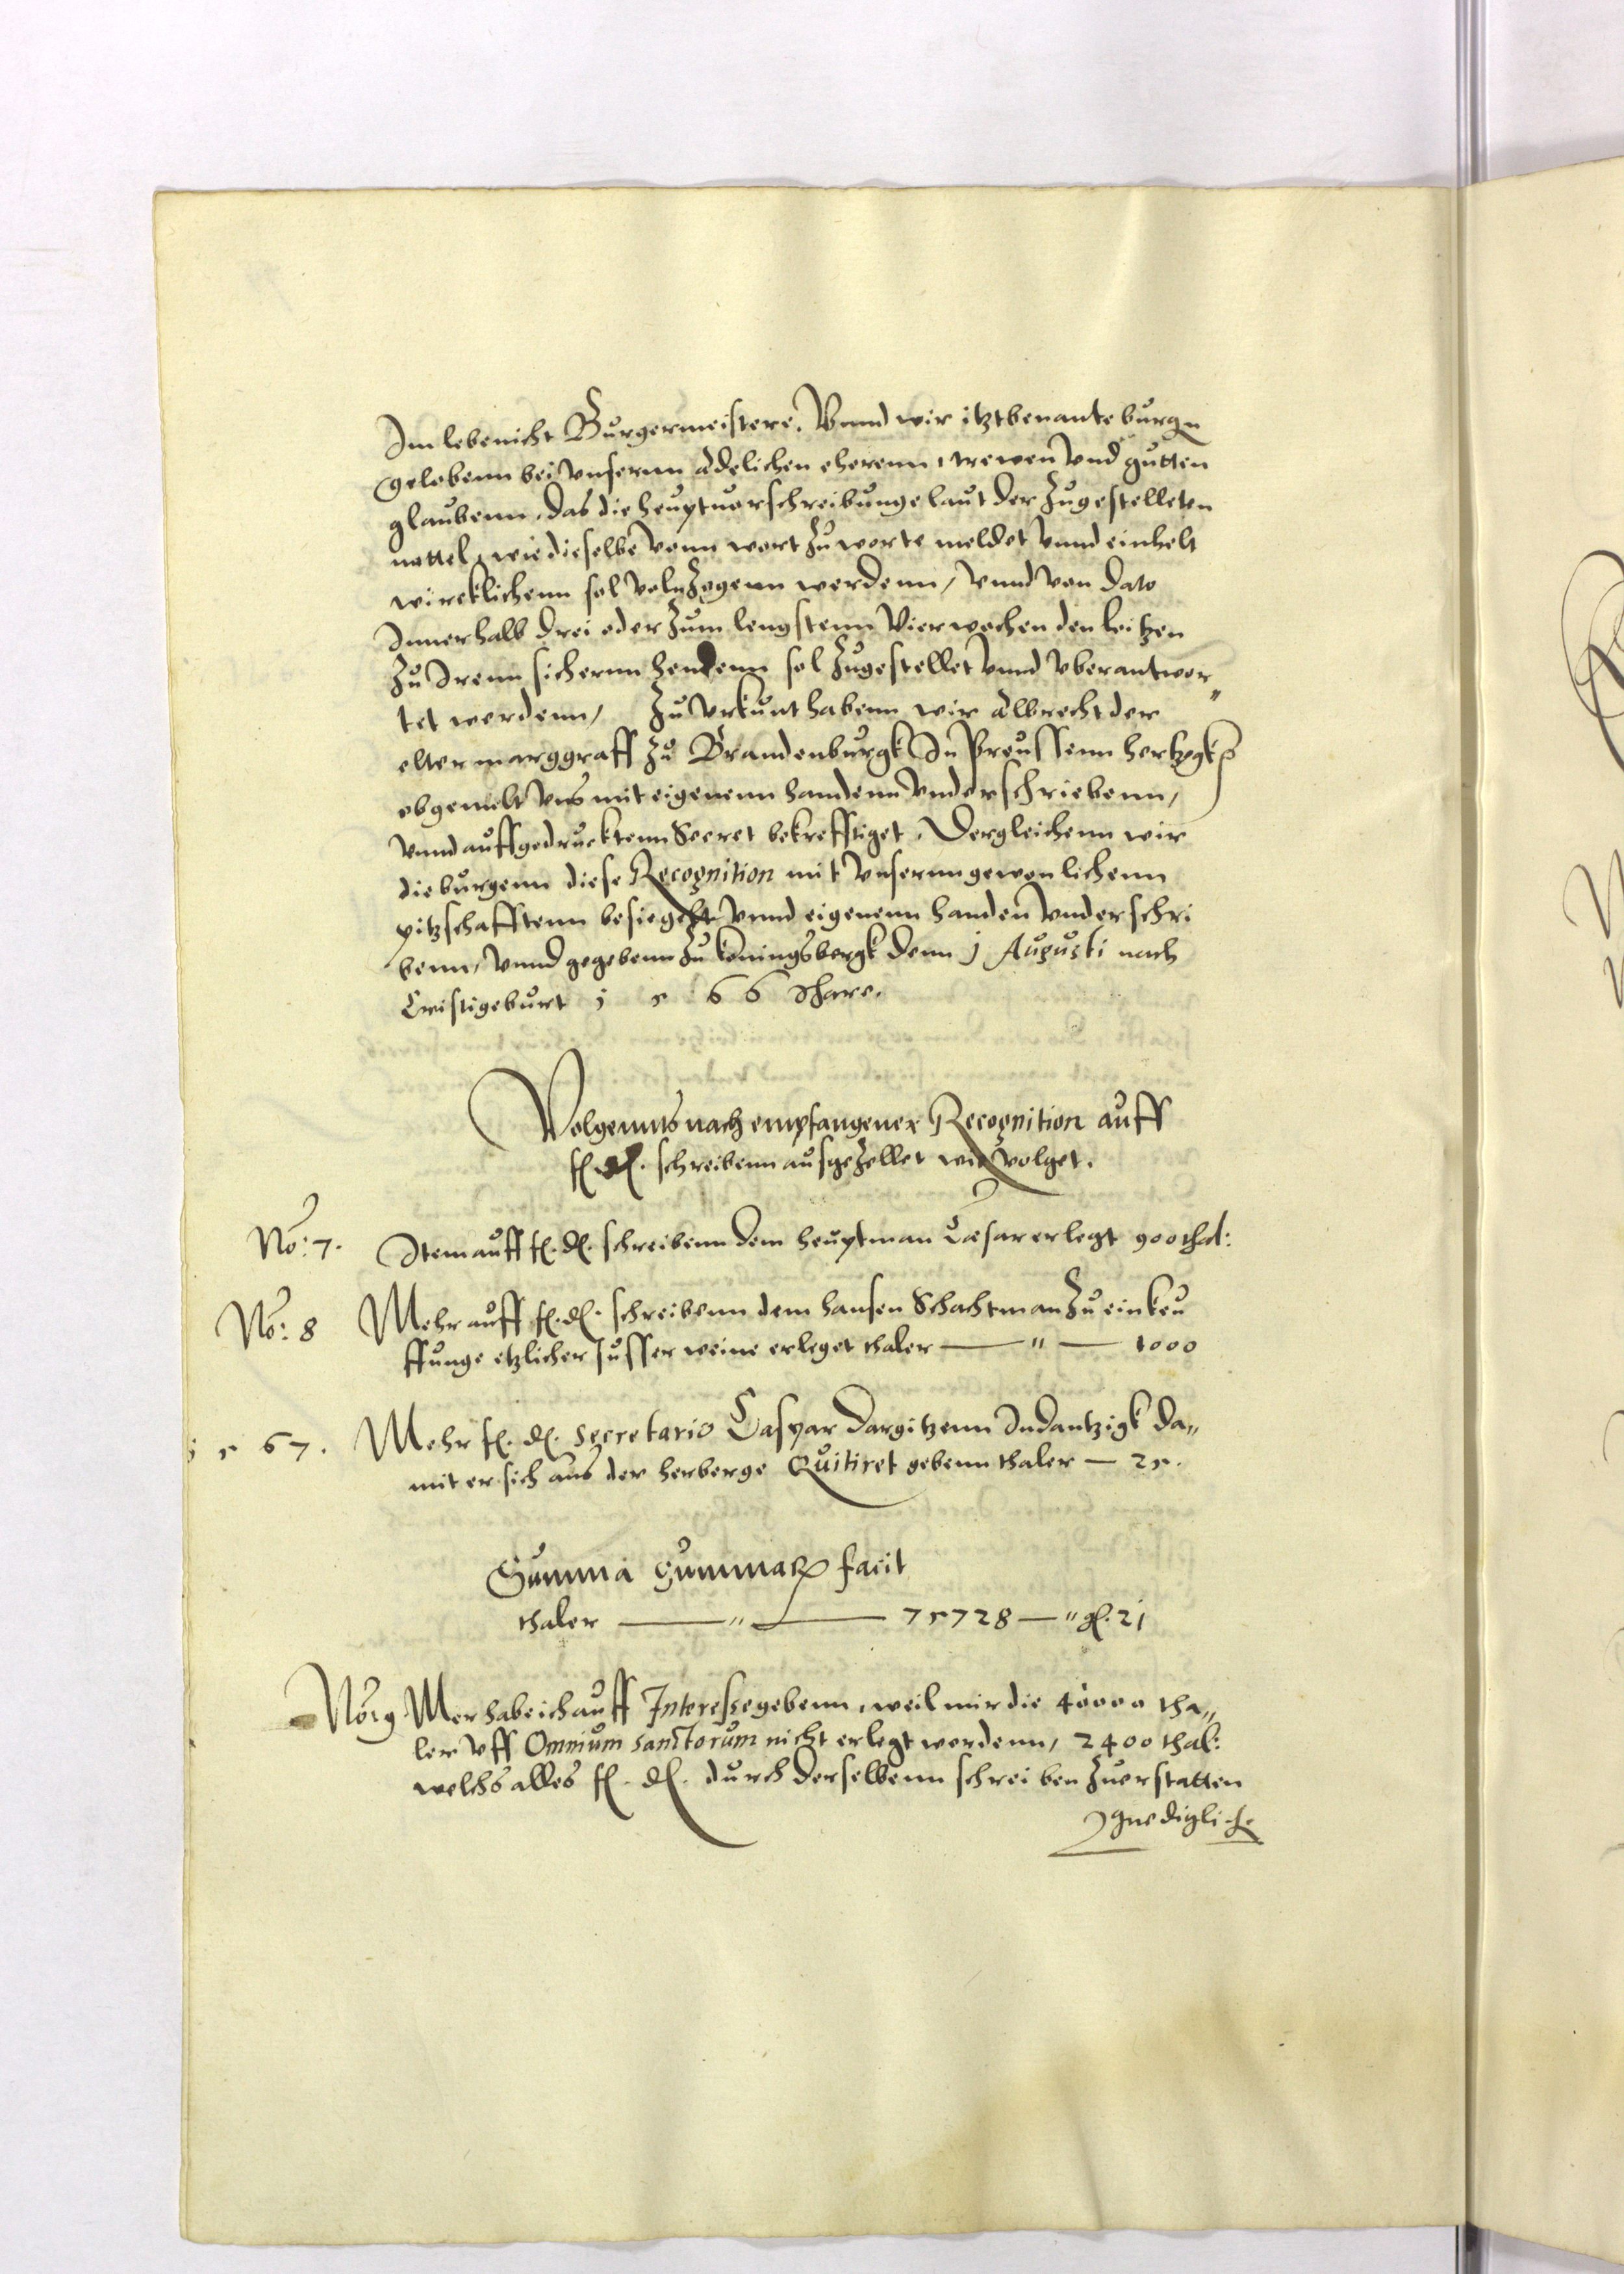 Im lebenicht Burgermeistere, Vnnd wir itztbenante burgn
gelobenn bei vnsernn adelichen eherenn, trewen vnd gutten
glaubenn, das die heuptuorschreibunge laut der zugestelleten
nottel, wie dieselbe vonn wort zu worte meldet vnnd einhelt
wircklichenn sol volnzogenn werdenn, vnnd von dato
Innerhalb drei oder zum lengstenn Vier wochen den leitzen
zu Irenn sichernn hendenn sol zugestellet vnnd vberantwor„
tet werdenn, Zu vrkunt habenn wir Albrecht der
elter marggraff zu Brandenburgk In Preussenn hertzogk
obgemelt vns mit eigenenn handenn vnderschriebenn,
vnnd auffgedrucktenn Secret bekrefftiget, Dergleichenn wir
die burgenn diese Recognition mit vnsernn gewonlichenn
pitzschafftenn besiegelt vnnd eigenenn handen vnderschri
benn, vnnd gegebenn zu koningsbergk denn j Augusti nach
Cristi geburt j 5 6 6 Jhare.
Volgennts nach empfangener Recognition auff
f. d. schreibenn ausgezellet wie volget.
No: 7. Item auff f. d. schreibenn dem heuptman Cæsar erlegt 900 thal:
No: 8 Mehr auff f. d. schreibenn dem hansen Schachtman zu einkeu
ffunge etzlicher susser weine erleget thaler — „ — 1000
j 5 67. Mehr f. d. Secretario Caspar dargitzenn In dantzigk da„
mit er sich aus der herberge Quitiret gebenn thaler — 25.
Summa Summar facit
thaler — „ — 75728 — „ gl. 2j
No: 9 Mer habe ich auff Interesse gebenn, weil mir die 40000 tha„
ler vff Omnium sanctorum nicht erlegt wordenn, 2400 thal:
welchs alles f. d. durch derselbenn schreiben zuerstatten
gnediglich